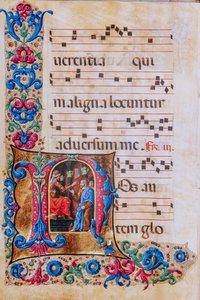 uerentia qui
maligna locuntur
aduersum me. Fr̄. iii.
Nos au
tem glo